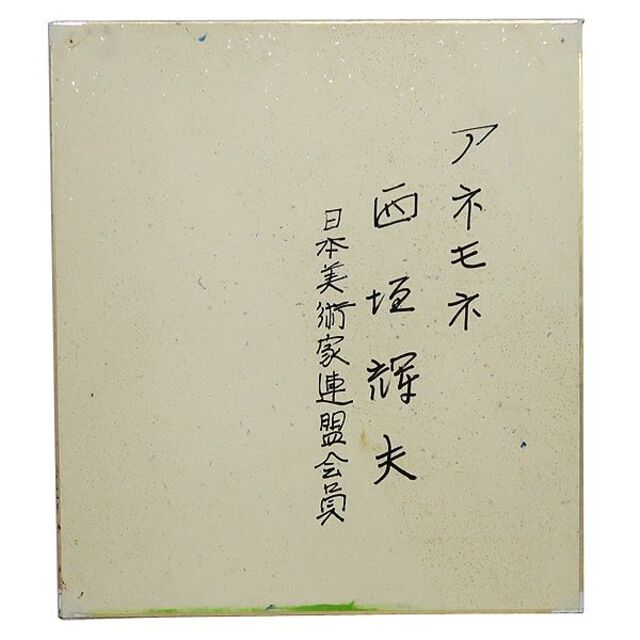 アネモネ
西垣輝夫
日本美術家連盟会員